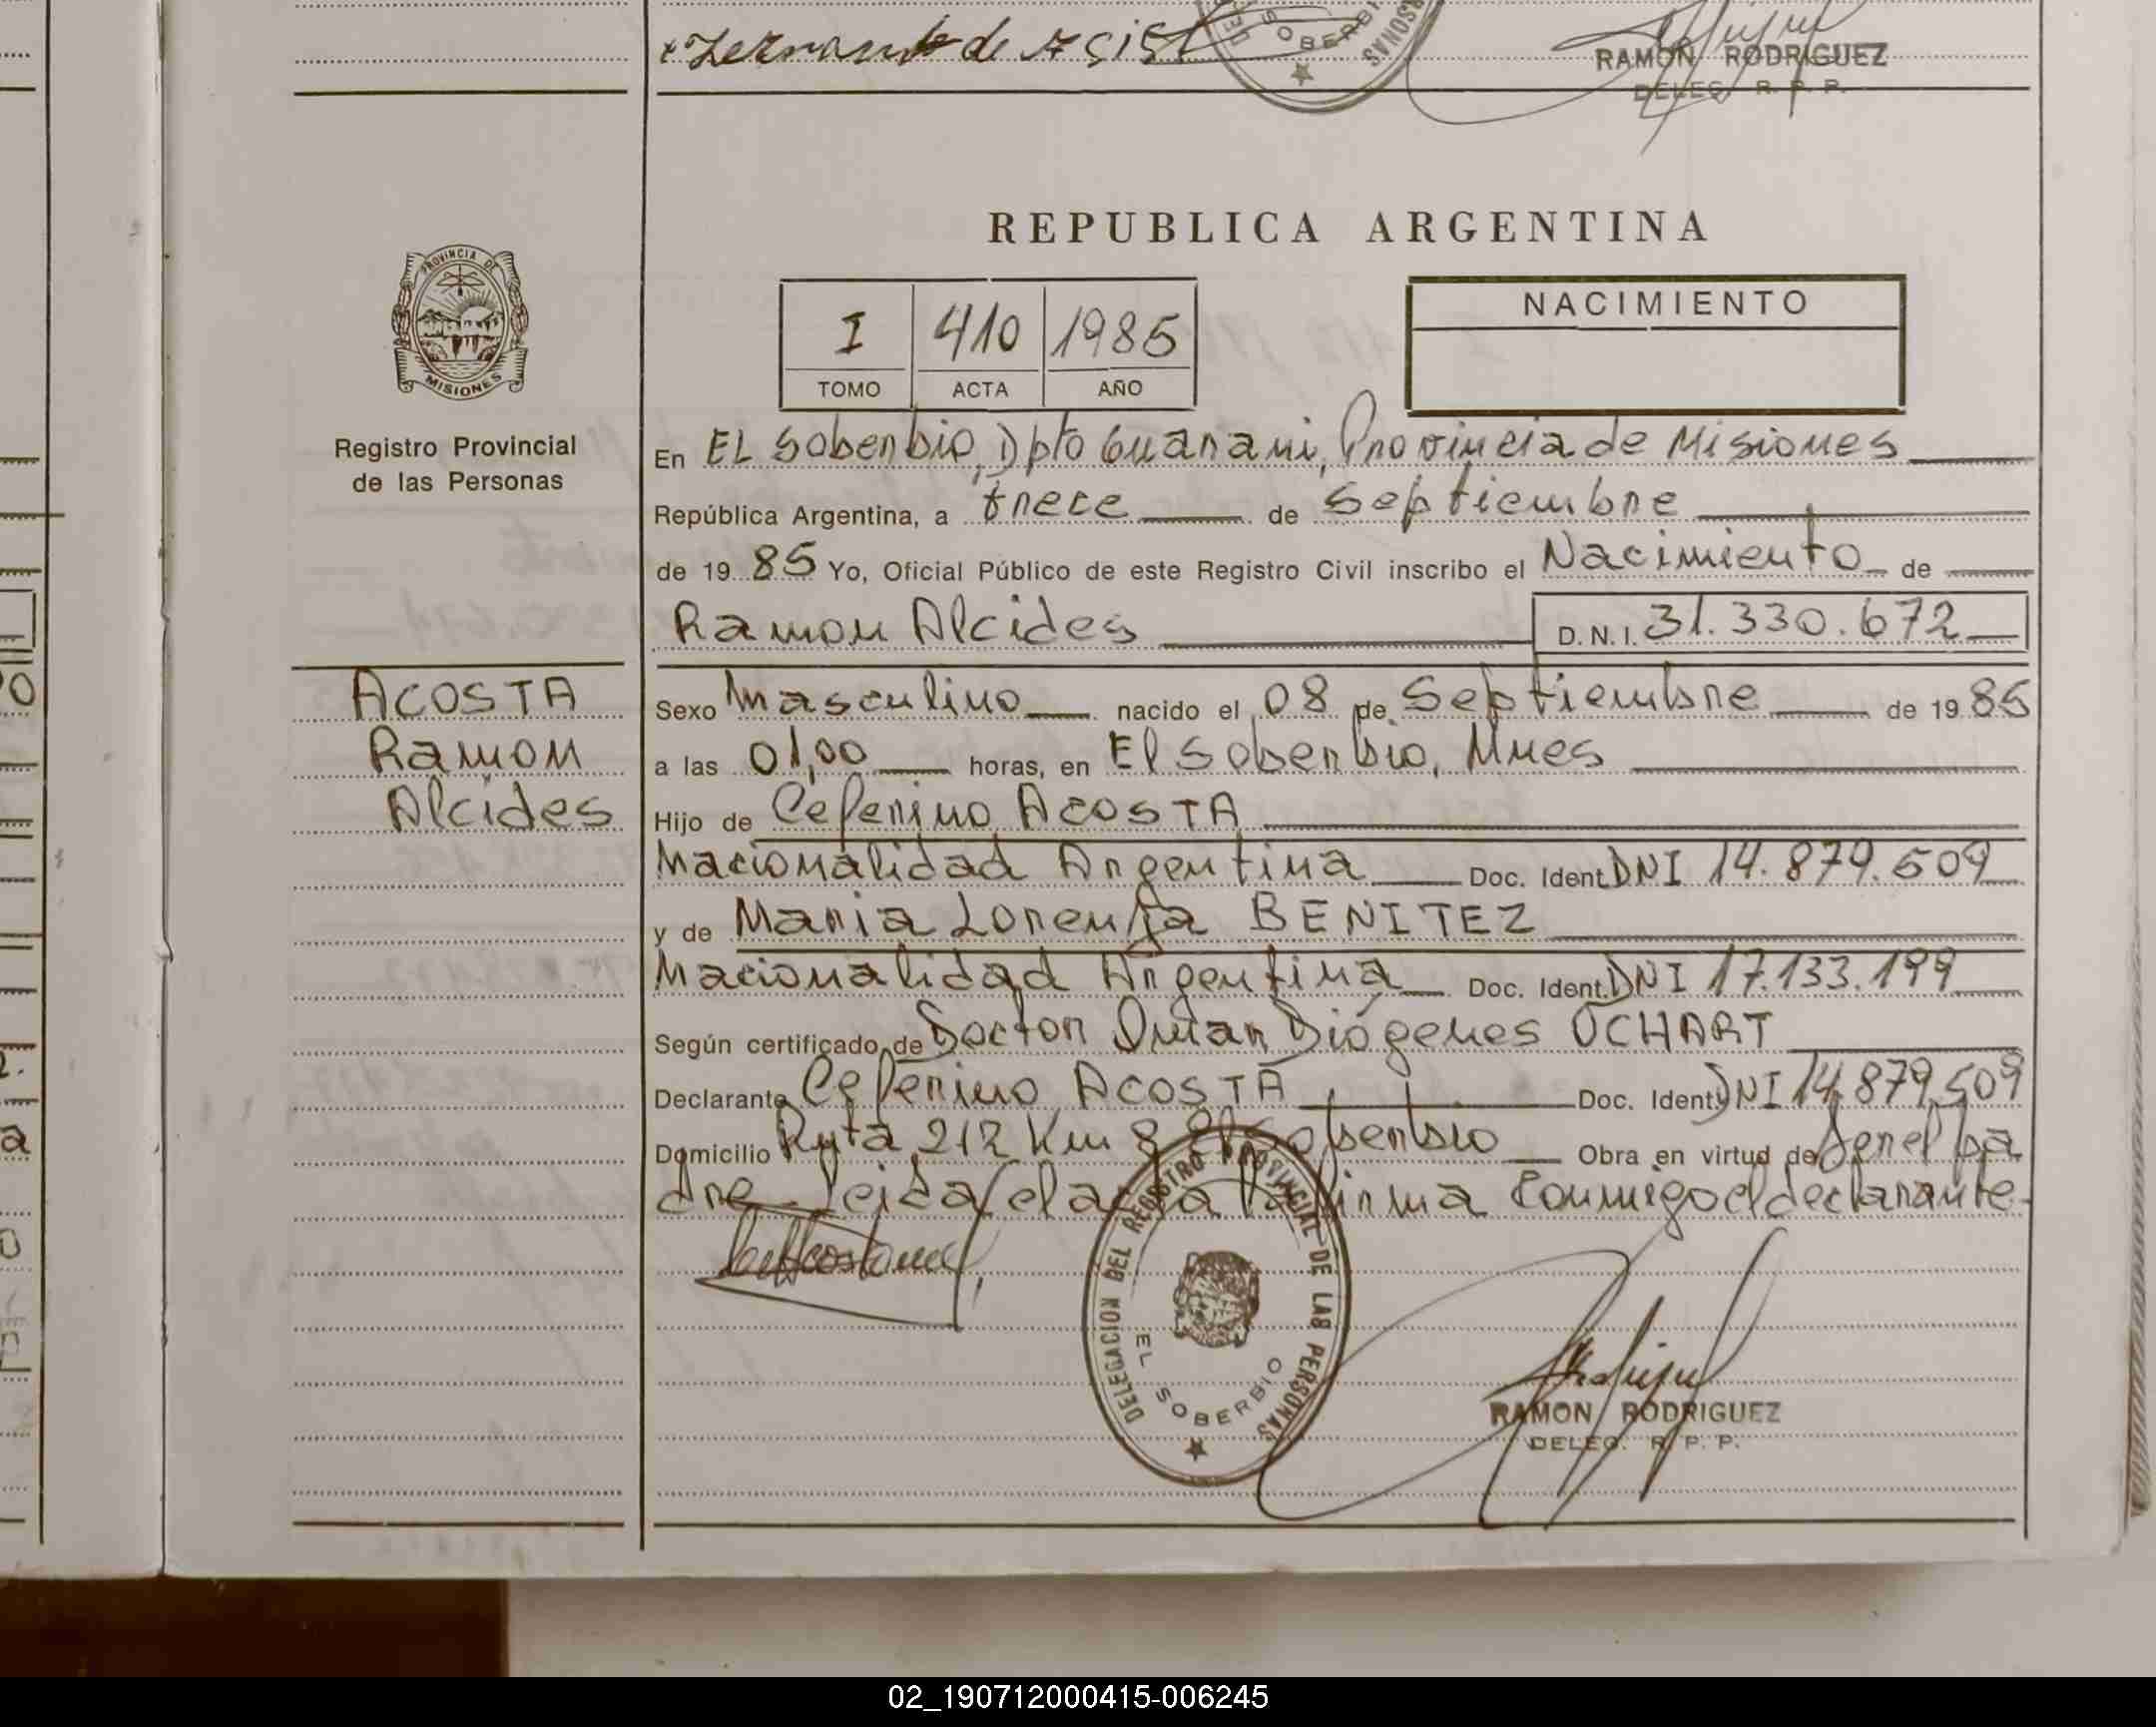 Fernando de Asis
SOBERBIO
RAMON RODRIGUEZ
DELEG. R. P. P.
REPUBLICA ARGENTINA
PROVINCIA DE
MISIONES
Registro Provincial
de las Personas
I 410 1985
TOMO ACTA AÑO
NACIMIENTO
En EL Soberbio, Dpto Guarani, Provincia de Misiones
República Argentina, a trece de Septiembre
de 19 85 Yo, Oficial Público de este Registro Civil inscribo el Nacimiento de
Ramon Alcides D.N.I. 31.330.672
ACOSTA
Ramon
Alcides
Sexo Masculino nacido el 08 de Septiembre de 19 85
a las 01,00 horas, en El Soberbio, Mnes
Hijo de Ceferino ACOSTA
Nacionalidad Argentina Doc. Ident. DNI 14.879.509
y de Maria Lorenza BENITEZ
Nacionalidad Argentina Doc. Ident. DNI 17.133.199
Según certificado de Doctor Omar Diógenes OCHART
Declarante Ceferino ACOSTA Doc. Ident. DNI 14.879.509
Domicilio Ruta 212 Km 8 El Soberbio Obra en virtud de Ser el pa
dre Leida el acta la firma conmigo el declarante
DELEGACION DEL REGISTRO PROVINCIAL DE LAS PERSONAS
EL SOBERBIO
RAMON RODRIGUEZ
DELEG. R. P. P.
02_190712000415-006245